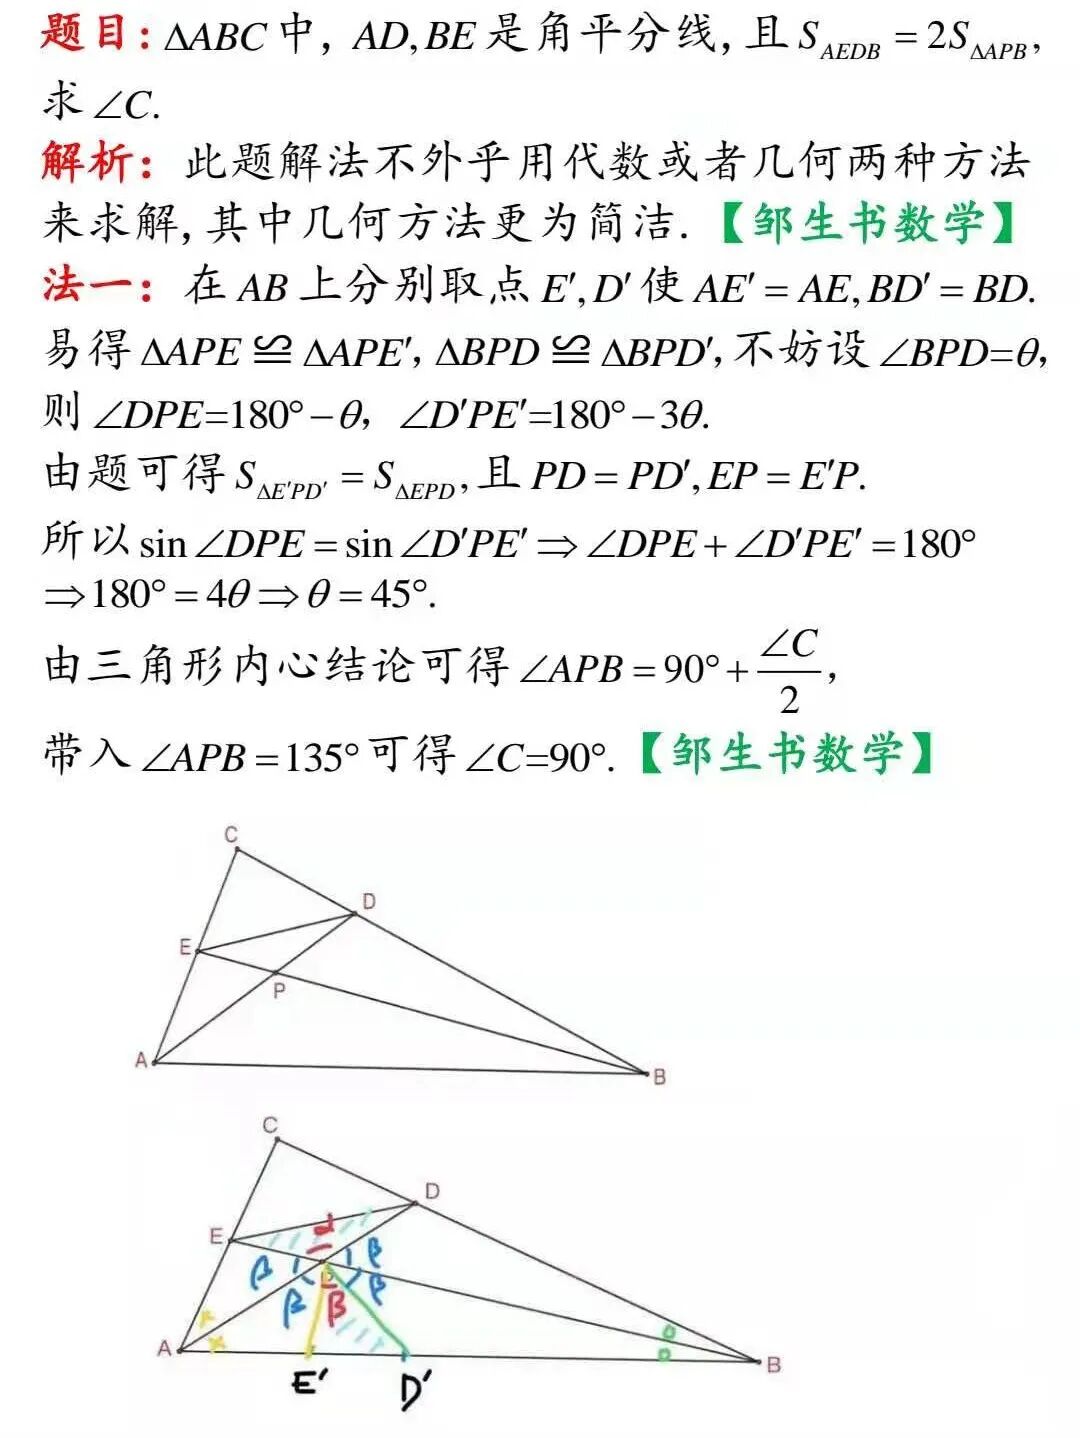 题目: ΔABC中, AD,BE是角平分线, 且S_AEDB = 2S_ΔAPB,
求∠C.
解析: 此题解法不外乎用代数或者几何两种方法
来求解, 其中几何方法更为简洁. 【邹生书数学】
法一: 在AB上分别取点E′,D′使AE′ = AE,BD′ = BD.
易得ΔAPE≌ΔAPE′, ΔBPD≌ΔBPD′, 不妨设∠BPD=θ,
则∠DPE=180°−θ, ∠D′PE′=180°−3θ.
由题可得S_ΔE′PD′ = S_ΔEPD, 且PD = PD′, EP = E′P.
所以sin∠DPE = sin∠D′PE′⇒∠DPE+∠D′PE′ =180°
⇒180° = 4θ⇒θ = 45°.
由三角形内心结论可得∠APB = 90°+∠C/2,
带入∠APB =135°可得∠C=90°. 【邹生书数学】
C
D
E
P
A
B
C
D
E
α
β β
β β
β
A
B
E′ D′